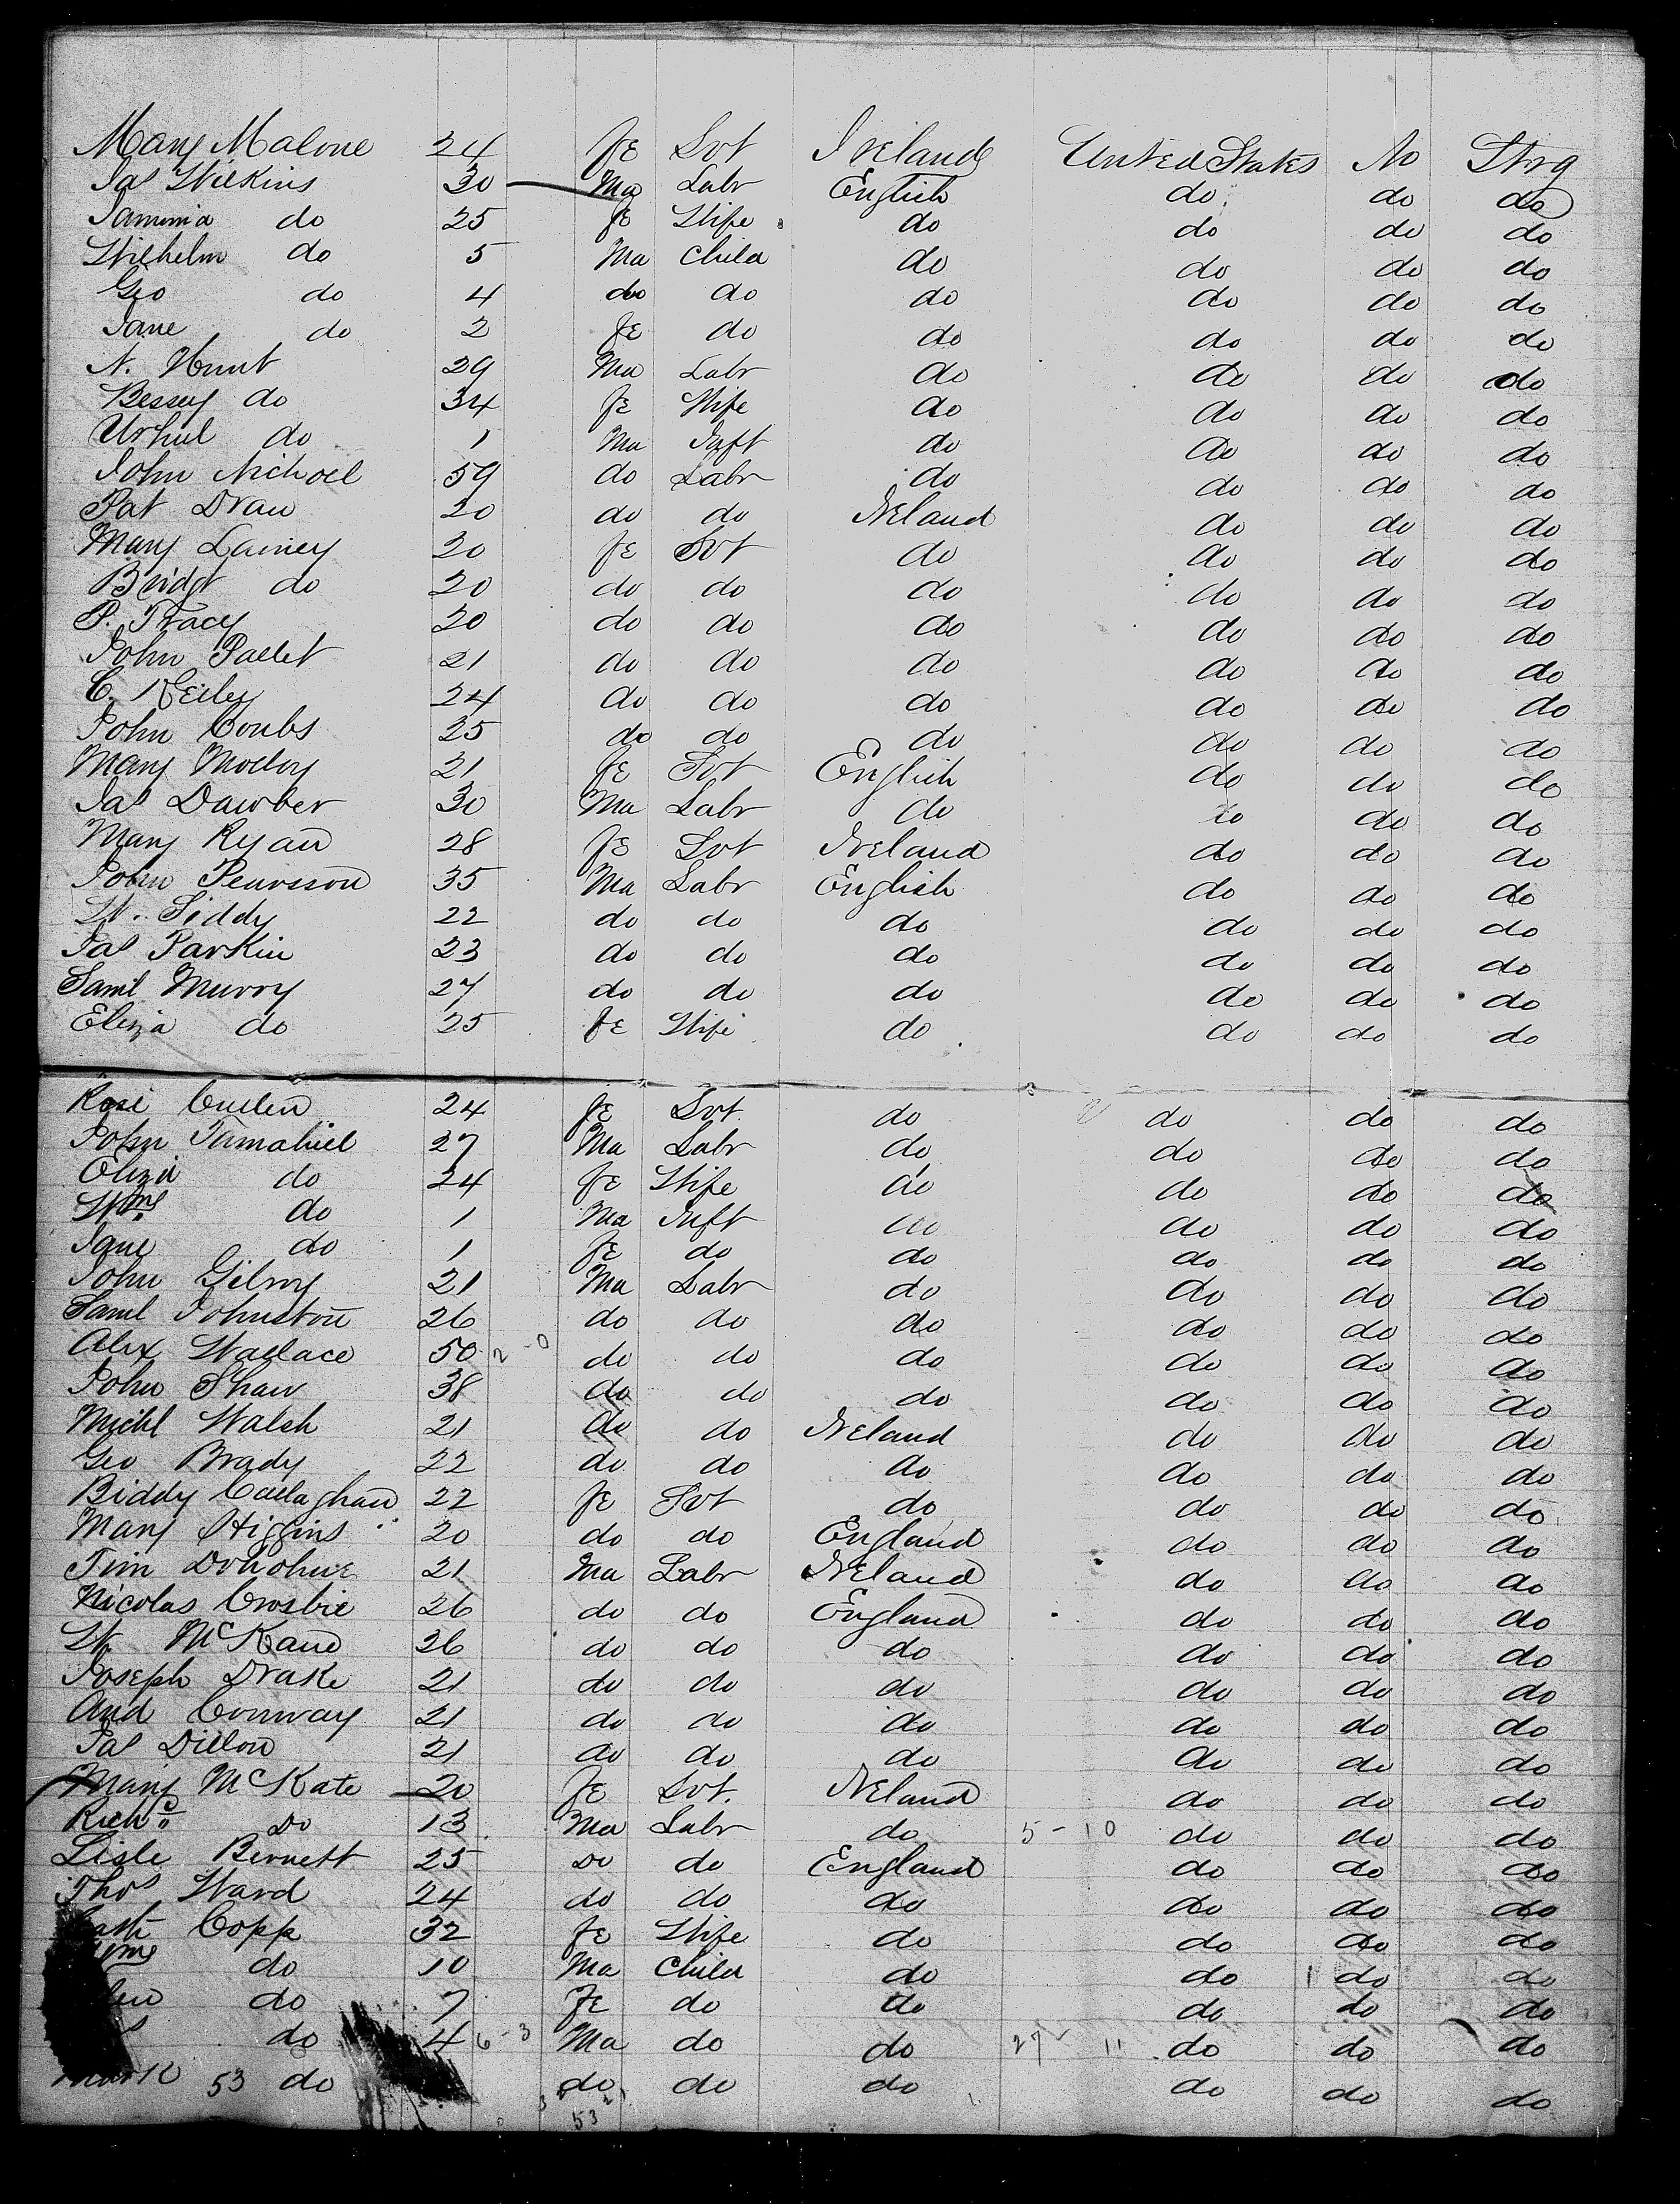 Mary Malone 24 Fe Svt Ireland United States No Strg
Jas Wilkins 30 Ma Labr English do do do
Jammia do 25 Fe Wife do do do do
Wilhelm do 5 Ma Child do do do do
Geo do 4 do do do do do do
Jane do 2 Fe do do do do do
N. Hunt 29 Ma Labr do do do do
Bessey do 34 Fe Wife do do do do
do 1 Ma Inft do do do do
John Nichoel 59 do Labr do do do do
Pat Dran 20 do do Ireland do do do
Mary Lainey 20 Fe Svt do do do do
Bridgt do 20 do do do do do do
P. Tracy 20 do do do do do do
John Pallet 21 do do do do do do
C. Keiley 24 do do do do do do
John Coubs 25 do do do do do do
Mary Molloy 21 Fe Svt English do do do
Jas Dawber 30 Ma Labr do do do do
Mary Ryan 28 Fe Svt Ireland do do do
John Pearsson 35 Ma Labr English do do do
W. Siddy 22 do do do do do do
Jas Parkin 23 do do do do do do
Saml Murry 27 do do do do do do
Eliza do 25 Fe Wife do do do do
Rose Cullen 24 Fe Svt do do do do
John 27 Ma Labr do do do do
Eliza do 24 Fe Wife do do do do
Wm do 1 Ma Inft do do do do
Jane do 1 Fe do do do do do
John Gilroy 21 Ma Labr do do do do
Saml Johnston 26 do do do do do do
Alex Wallace 50 2-0 do do do do do do
John Shaw 38 do do do do do do
Michl Walsh 21 do do Ireland do do do
Geo Brady 22 do do do do do do
Biddy Callaghan 22 Fe Svt do do do do
Mary Higgins 20 do do England do do do
Tim Donohue 21 Ma Labr Ireland do do do
Nicolas Crosbie 26 do do England do do do
W. McKane 26 do do do do do do
Joseph Drake 21 do do do do do do
And Conway 21 do do do do do do
Jas Dillon 21 do do do do do do
Mary McKate 20 Fe Svt. Ireland do do do
Richd Do 13 Ma Labr do 5-10 do do do
Lisle Bennett 25 Do do England do do do
Thos Ward 24 do do do do do do
Copp 32 Fe Wife do do do do
do 10 Ma Child do do do do
do 7 Fe do do do do do
do 4 6-3 Ma do do 27 11 do do do
Mark 53 do do do do do do do
53